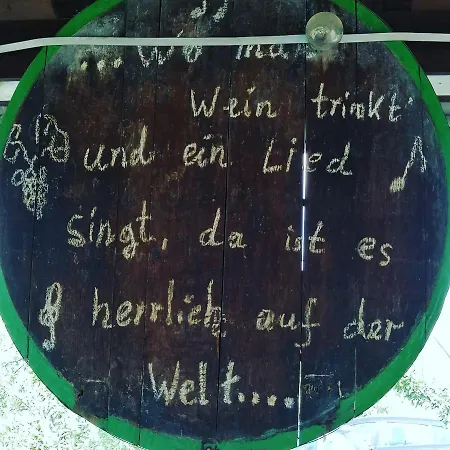 ...wo man
Wein trinkt
und ein Lied
singt, da ist es
herrlich auf der
Welt....